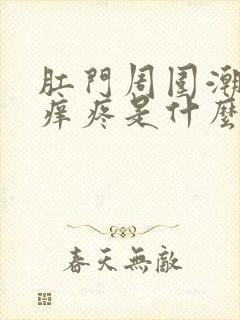 肛門周围潮
痒疼是什麼
春天無敵